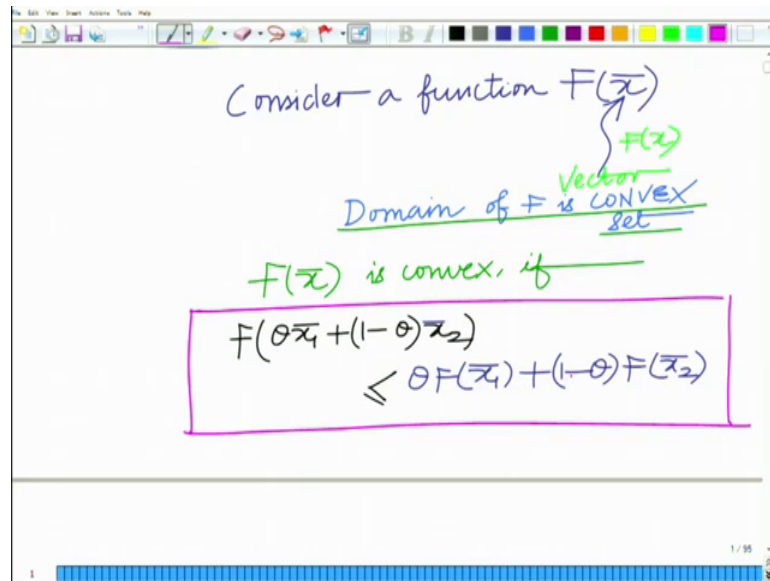 File Edit View Insert Actions Tools Help
B I
Consider a function F(x̅)
F(x)
Vector
Domain of F is CONVEX
Set
F(x̅) is convex, if
F(θx̅₁ + (1 - θ)x̅₂)
≤ θF(x̅₁) + (1-θ)F(x̅₂)
1 / 95
1